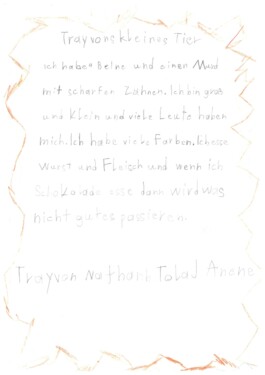 Trayvons kleines Tier
ich habe 4 Beine und einen Mud
mit scharfen Zähnen. Ich bin groß
und klein und viele Leute haben
mich. Ich habe viele Farben. Ich esse
Wurst und Fleisch und wenn ich
Schokolade esse dann wird was
nicht gutes passieren.
Trayvon Nathan Anane